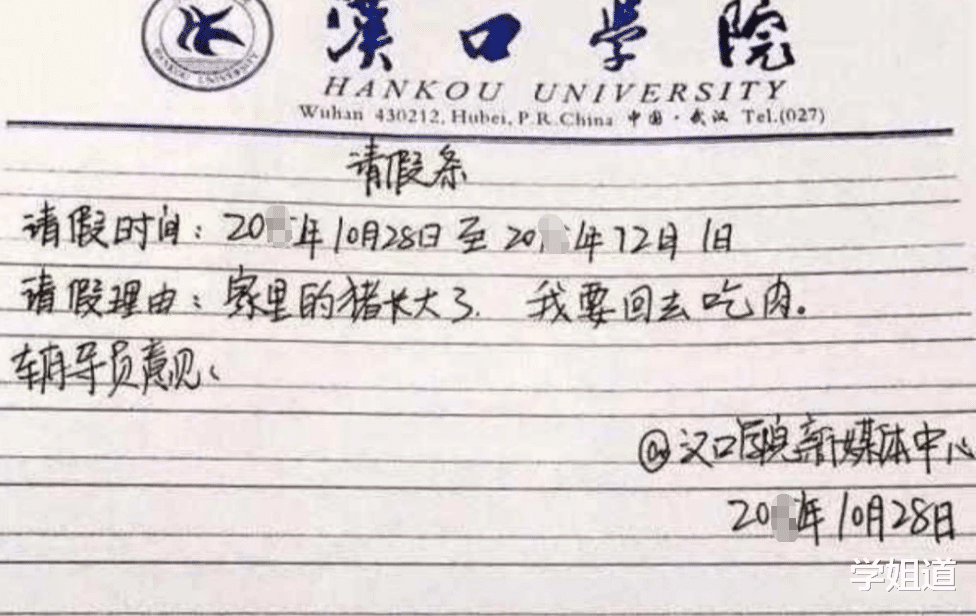 漢口学院
HANKOU UNIVERSITY
HANKOU UNIVERSITY
Wuhan 430212, Hubei, P.R.China 中国·武汉 Tel.(027)
请假条
请假时间：20 年10月28日至20 年12月1日
请假理由：家里的猪长大了. 我要回去吃肉。
辅导员意见：
@汉口学院新媒体中心
20 年10月28日
学姐道